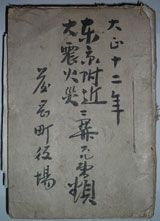 大正十二年
東京附近
大震火災ニ関スル書類
蘆屋町役場